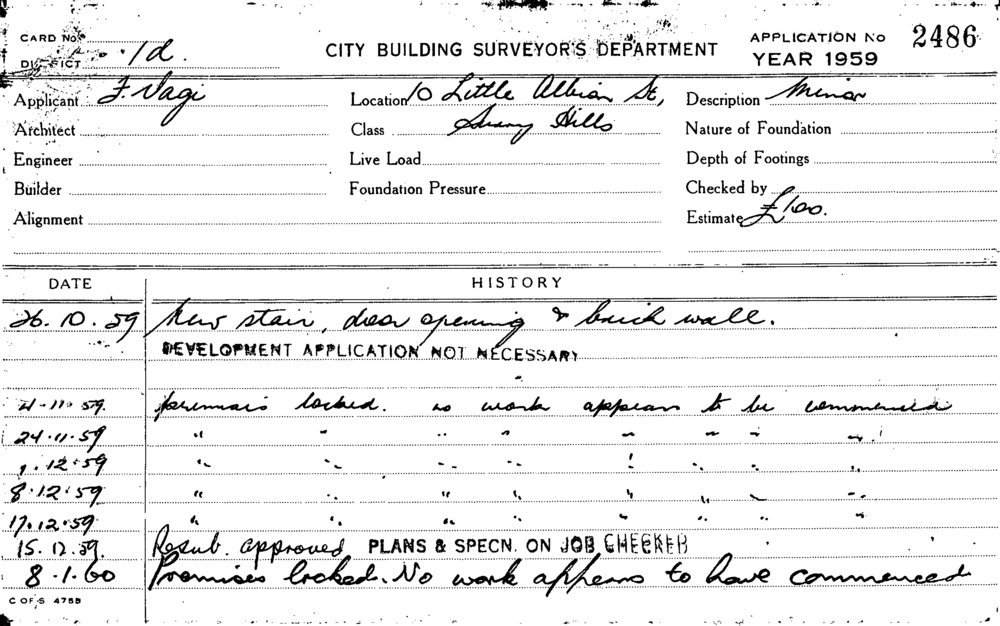 CARD No. CITY BUILDING SURVEYOR'S DEPARTMENT APPLICATION No 2486
DISTRICT 1d. YEAR 1959
Applicant F. Vagi Location 10 Little Albion St, Description Minor
Architect Class Surry Hills Nature of Foundation
Engineer Live Load Depth of Footings
Builder Foundation Pressure Checked by
Alignment Estimate £100.
DATE HISTORY
26.10.59 New stair, door opening & brick wall.
DEVELOPMENT APPLICATION NOT NECESSARY
4-11-59. premais locked. no work appears to be commenced
24.11.59 " " " " " " " "
1.12.59 " " " " " " " "
8.12.59 " " " " " " " "
17.12.59 " " " " " " " "
15.12.59. Resub. approved PLANS & SPECN. ON JOB CHECKED
8.1.60 Premises locked. No work appears to have commenced
C OF S 4755